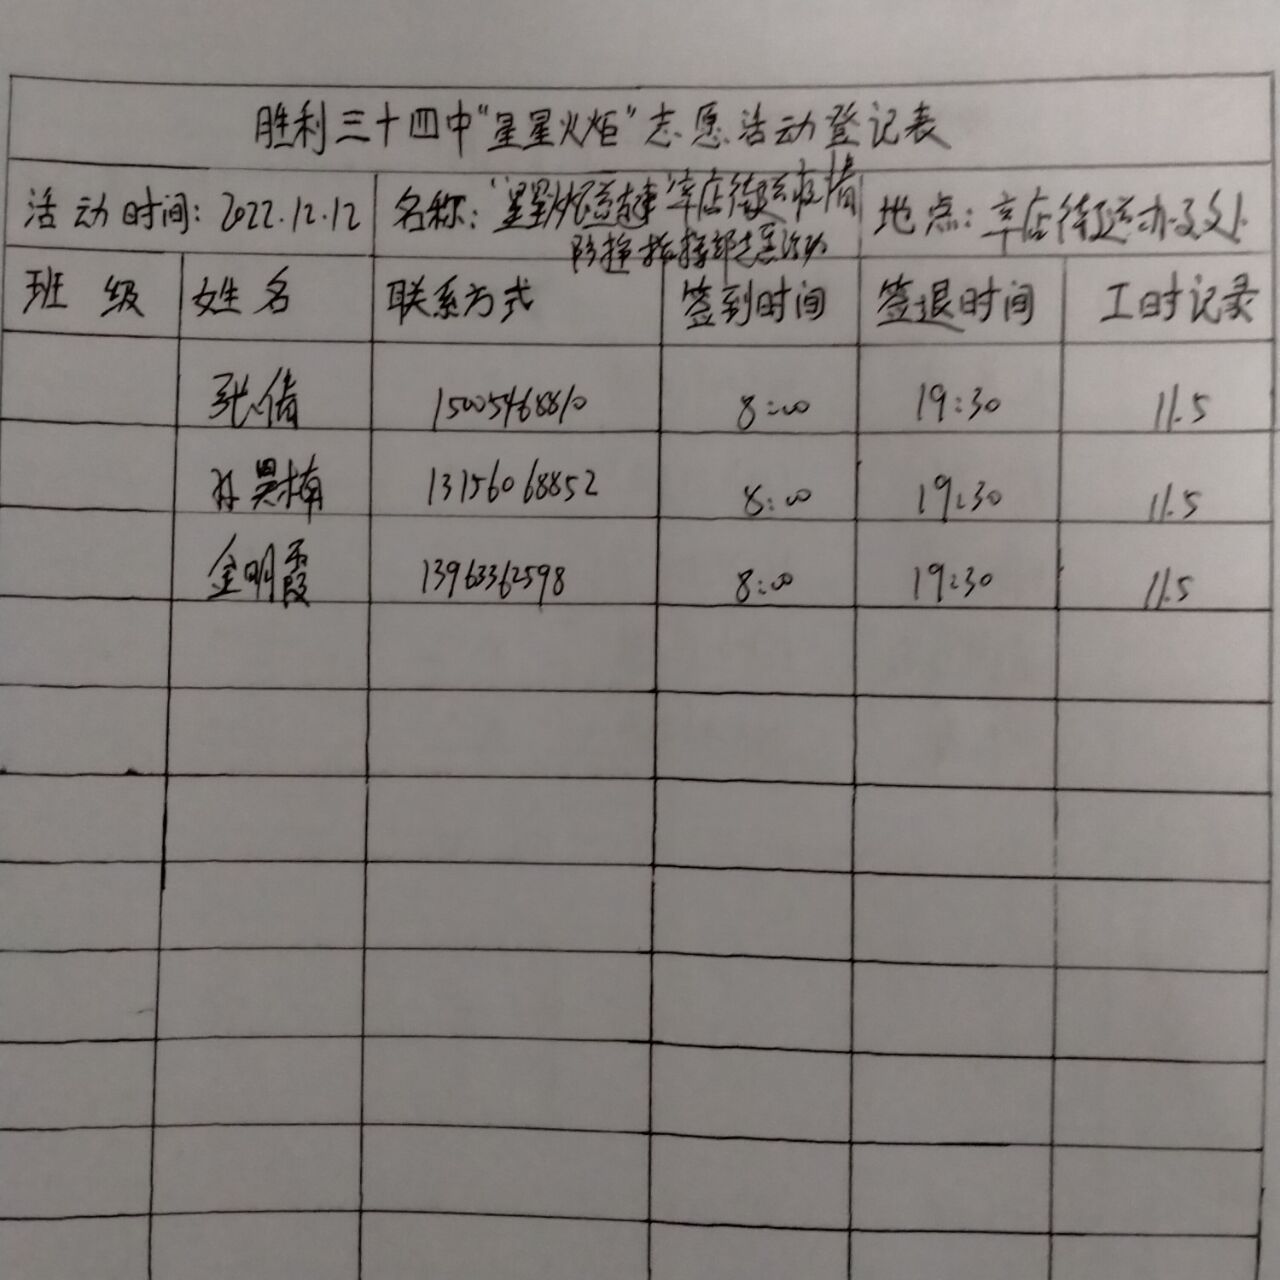 胜利三十四中“星星火炬”志愿活动登记表
活动时间：2022.12.12 名称：“星星火炬 辛店街道疫情 地点：辛店街道办事处
防控指挥部志愿活动
班 级 姓名 联系方式 签到时间 签退时间 工时记录
张倩 15005468810 8:00 19:30 11.5
孙昊楠 13156068852 8:00 19:30 11.5
金明霞 13963362598 8:00 19:30 11.5